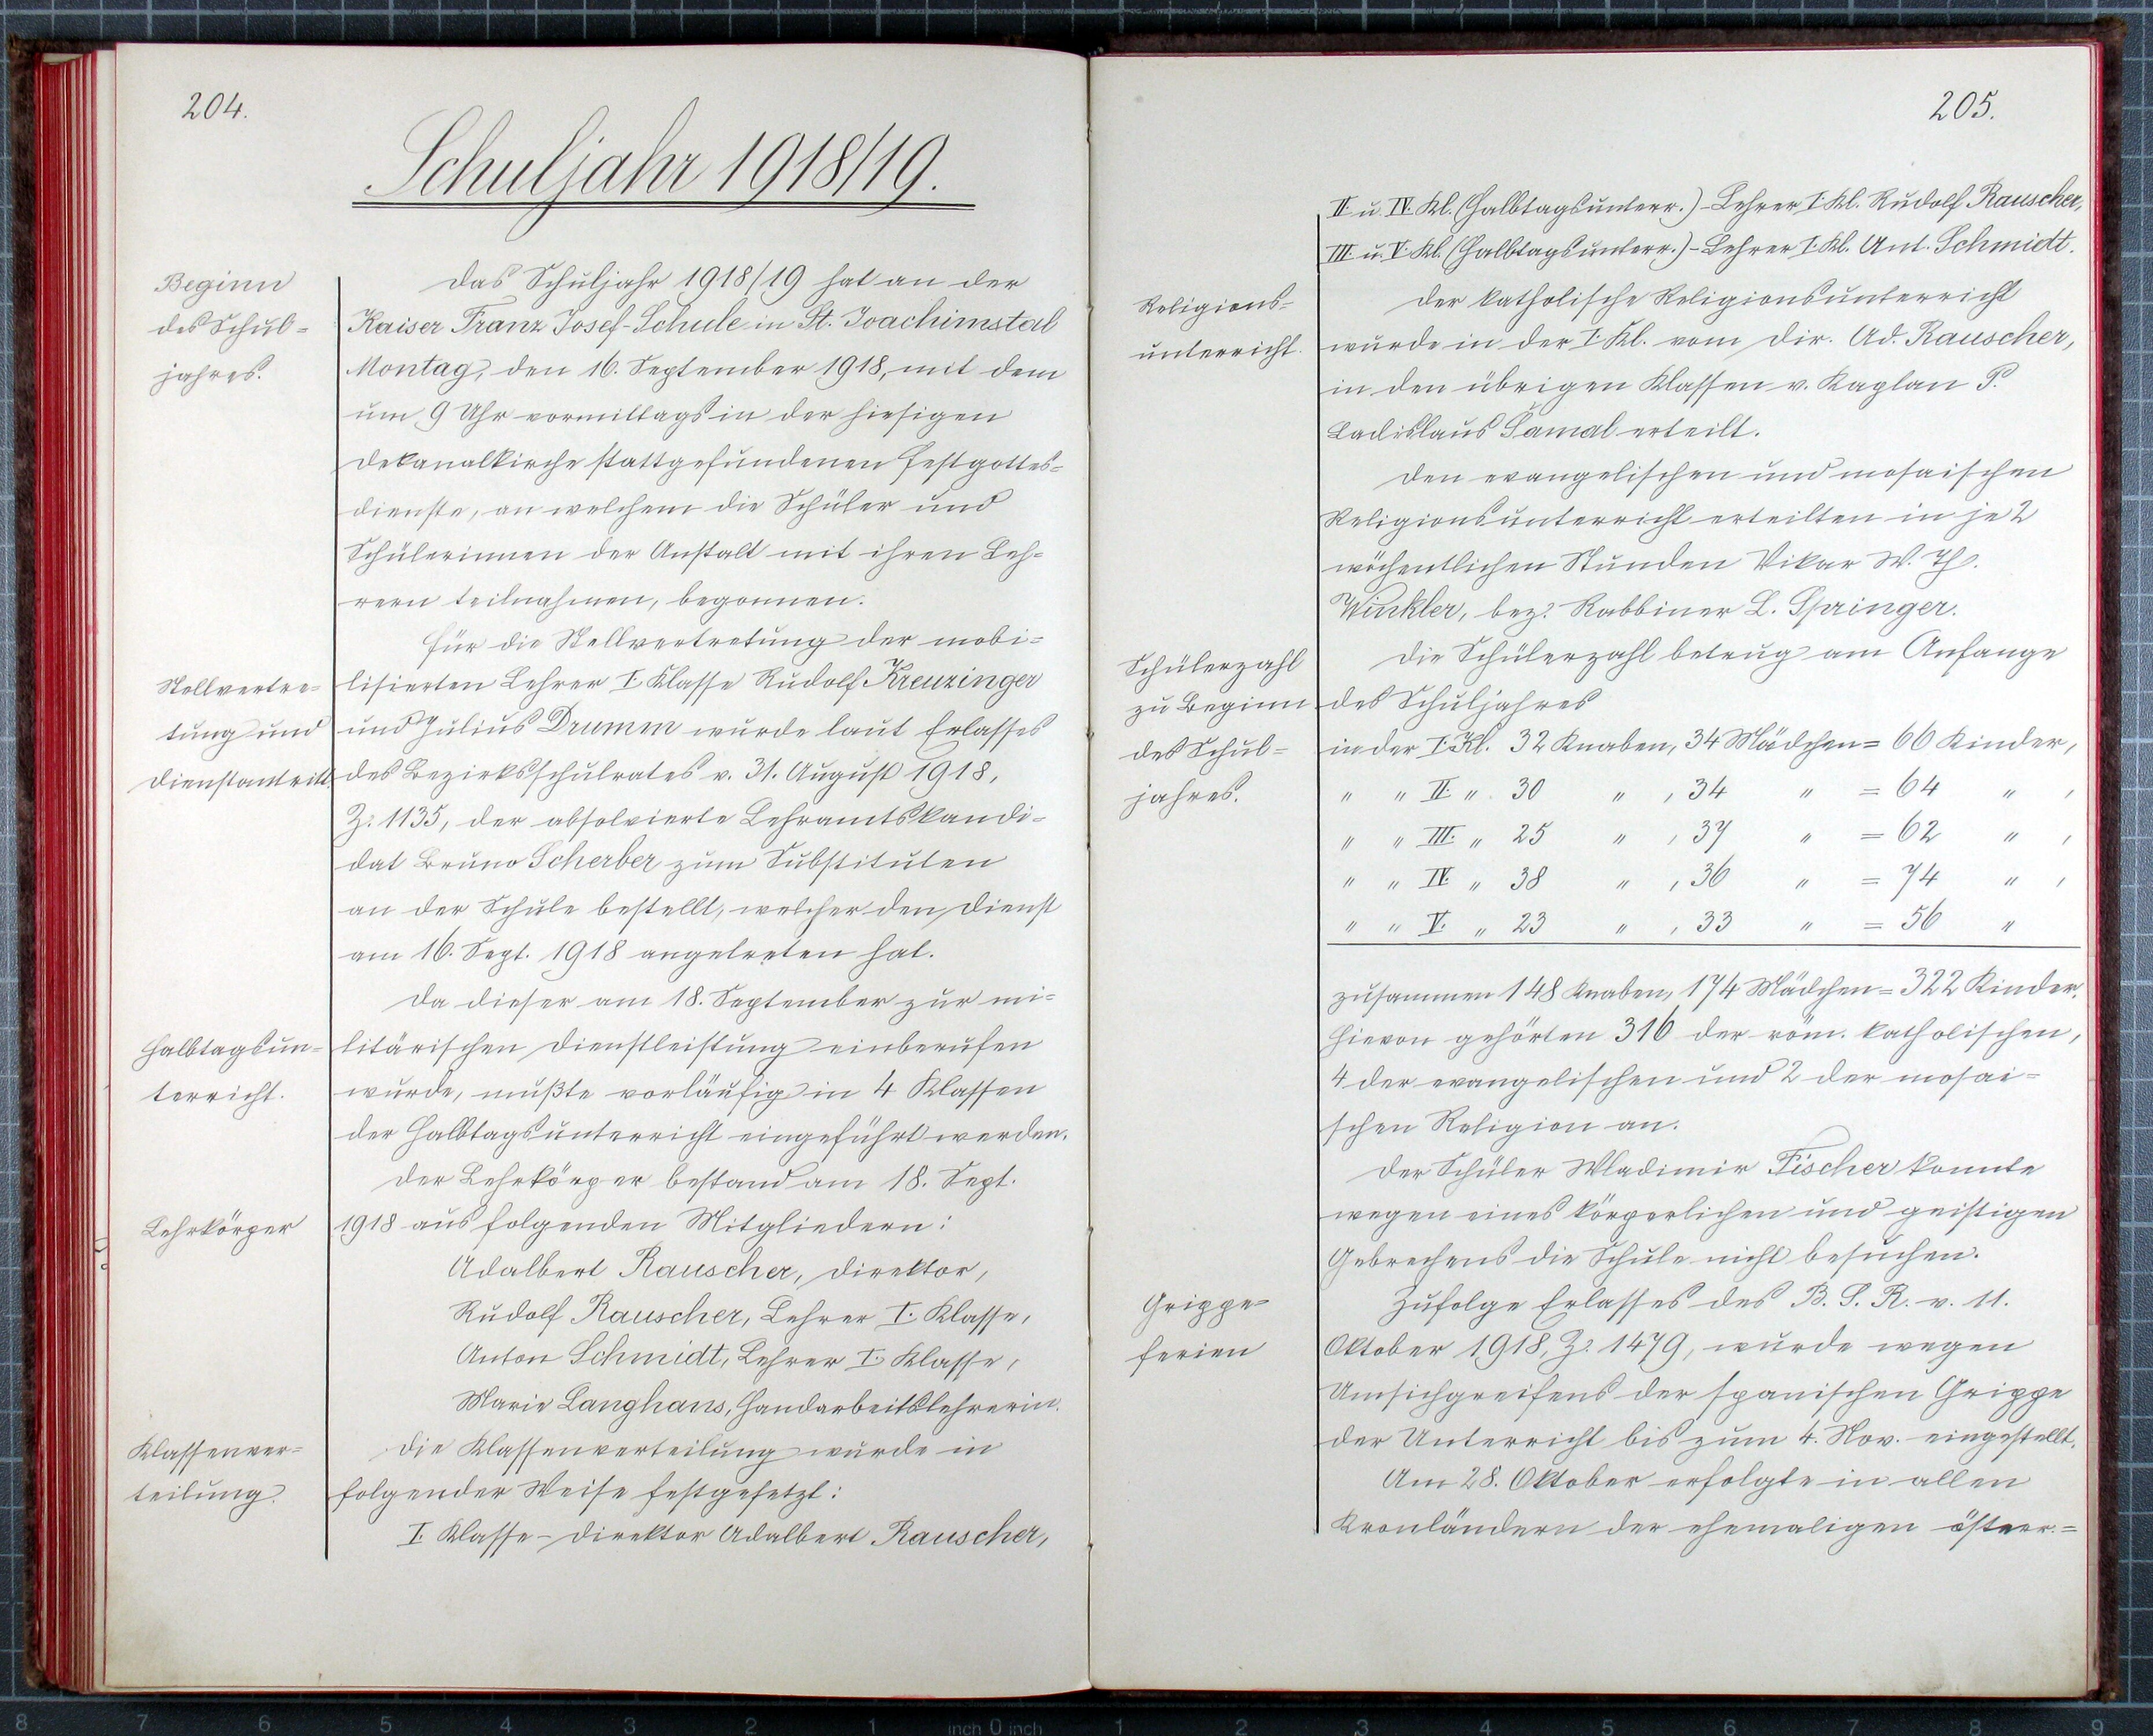 204.
Schuljahr 1918/19.
Beginn
des Schul=
jahres.
Das Schuljahr 1918/19 hat an der
Kaiser Franz Josef-Schule in St. Joachimstal
Montag, den 16. September 1918, mit dem
um 9 Uhr vormittags in der hiesigen
Dekanalkirche stattgefundenen Festgottes=
dienste, an welchem die Schüler und
Schülerinnen der Anstalt mit ihren Leh=
rern teilnahmen, begonnen.
Für die Stellvertretung der mobi=
Stellvertre=
tung und
Dienstantritt.
lisierten Lehrer I. Klasse Rudolf Kreuzinger
und Julius Drumm wurde laut Erlasses
des Bezirksschulrates v. 31. August 1918,
Z. 1135, der absolvierte Lehramtskandi=
dat Bruno Scherber zum Substituten
an der Schule bestellt, welcher den Dienst
am 16. Sept. 1918 angetreten hat.
Da dieser am 18. September zur mi=
Halbtagsun=
terricht.
litärischen Dienstleistung einberufen
wurde, mußte vorläufig in 4 Klassen
der Halbtagsunterricht eingeführt werden.
Der Lehrkörper bestand am 18. Sept.
Lehrkörper
1918 aus folgenden Mitgliedern:
Adalbert Rauscher, Direktor,
Rudolf Rauscher, Lehrer I. Klasse,
Anton Schmidt, Lehrer I. Klasse,
Marie Langhans, Handarbeitslehrerin.
Klassenver=
teilung.
Die Klassenverteilung wurde in
folgender Weise festgesetzt:
I. Klasse - Direktor Adalbert Rauscher,
205.
II. u. IV. Kl. (Halbtagsunterr.) - Lehrer I. Kl. Rudolf Rauscher,
III. u. V. Kl. (Halbtagsunterr.) - Lehrer I. Kl. Ant. Schmidt.
Religions=
unterricht.
Der katholische Religionsunterricht
wurde in der I. Kl. vom Dir. Ad. Rauscher,
in den übrigen Klassen v. Kaplan P.
Ladislaus Šamal erteilt.
Den evangelischen und mosaischen
Religionsunterricht erteilten in je 2
wöchentlichen Stunden Vikar W. Th.
Winkler, bez. Rabbiner L. Springer.
Schülerzahl
zu Beginn
des Schul=
jahres.
Die Schülerzahl betrug am Anfange
des Schuljahres
in der I. Kl. 32 Knaben, 34 Mädchen = 66 Kinder,
" " II. " 30 " , 34 " = 64 " ,
" " III. " 25 " , 37 " = 62 " ,
" " IV. " 38 " , 36 " = 74 " ,
" " V. " 23 " , 33 " = 56 "
zusammen 148 Knaben, 174 Mädchen = 322 Kinder.
Hievon gehörten 316 der röm. katholischen,
4 der evangelischen und 2 der mosai=
schen Religion an.
Der Schüler Wladimir Fischer konnte
wegen eines körperlichen und geistigen
Gebrechens die Schule nicht besuchen.
Grippe=
ferien
Zufolge Erlasses des B. S. R. v. 11.
Oktober 1918, Z. 1479, wurde wegen
Umsichgreifens der spanischen Grippe
der Unterricht bis zum 4. Nov. eingestellt.
Am 28. Oktober erfolgte in allen
Kronländern der ehemaligen österr.=
8 7 6 5 4 3 2 1 inch 0 inch 1 2 3 4 5 6 7 8 9